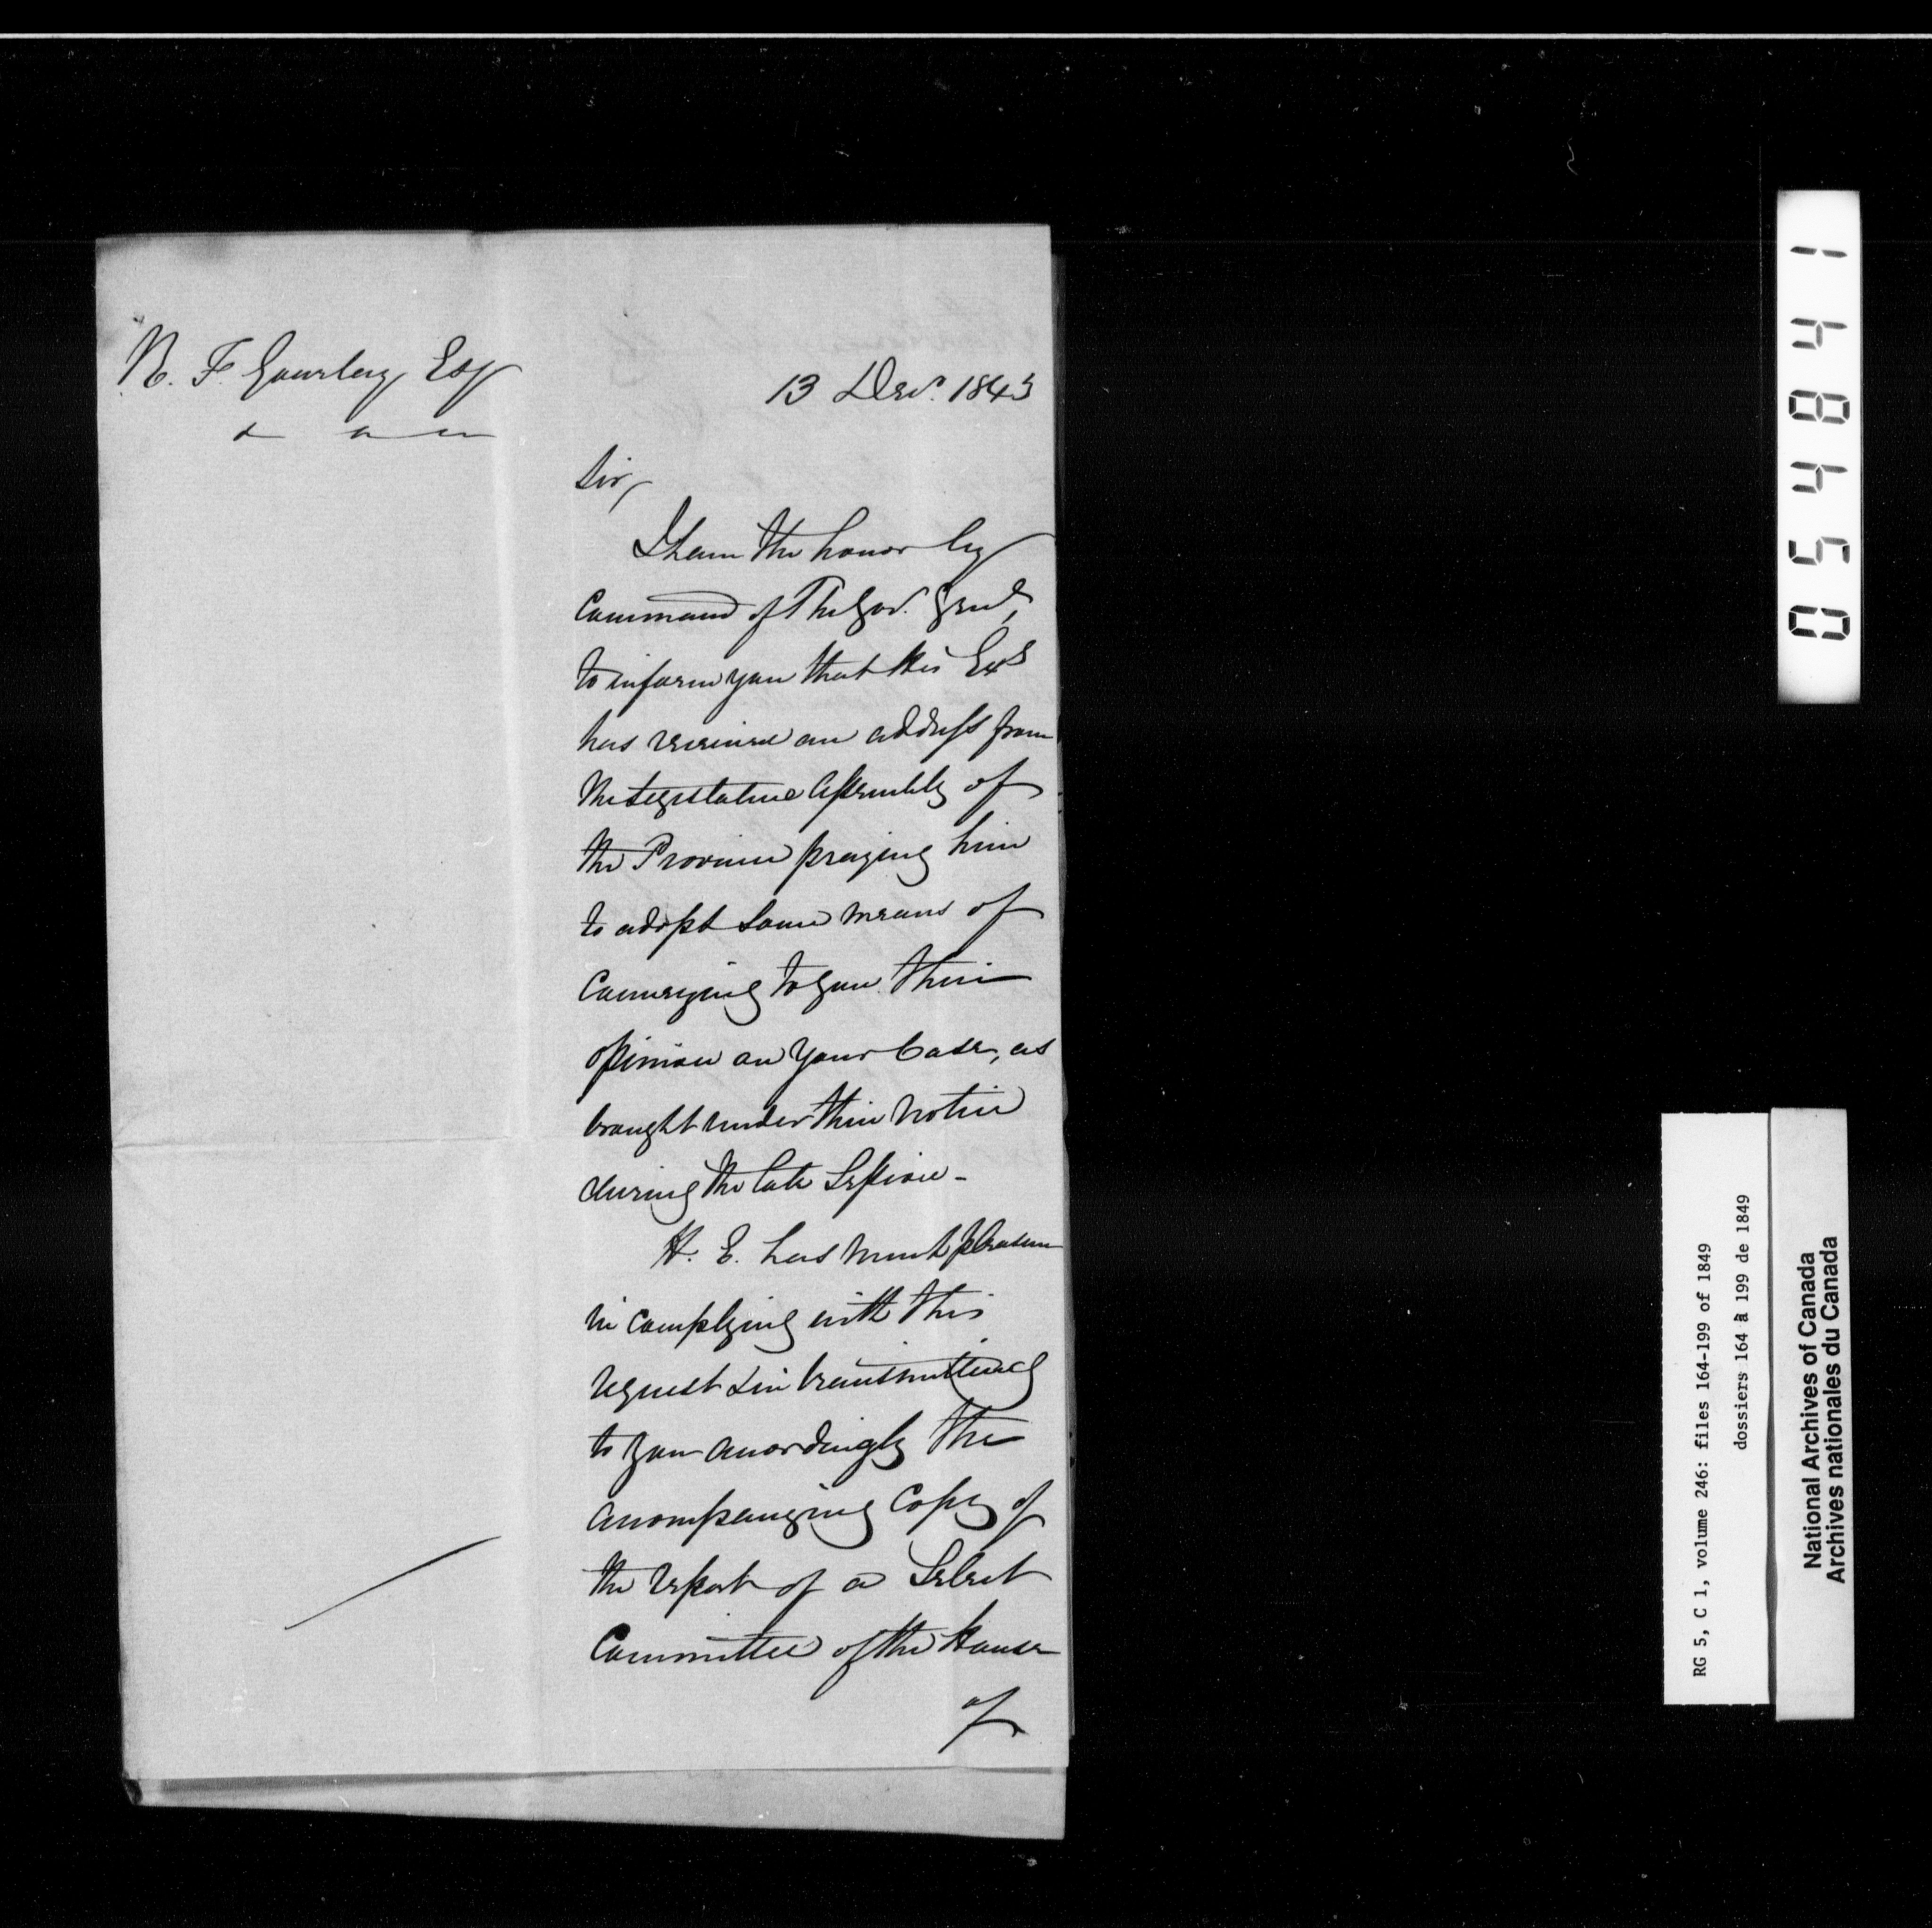 R. F. Gourlay Esq
13 Decr. 1843
Sir,
I have the honor by
Command of The Gov. Genl,
to inform you that His Exy
has received an address from
the Legislative Assembly of
the Province praying him
to adopt some means of
Conveying to you their
opinion on your Case, as
brought under their notice
during the late Session -
H. E. has much pleasure
in complying with this
request & in transmitting
to you accordingly the
accompanying Copy of
the report of a Select
Committee of the House
of
054841
RG 5, C 1, volume 246: files 164-199 of 1849
dossiers 164 à 199 de 1849
National Archives of Canada
Archives nationales du Canada